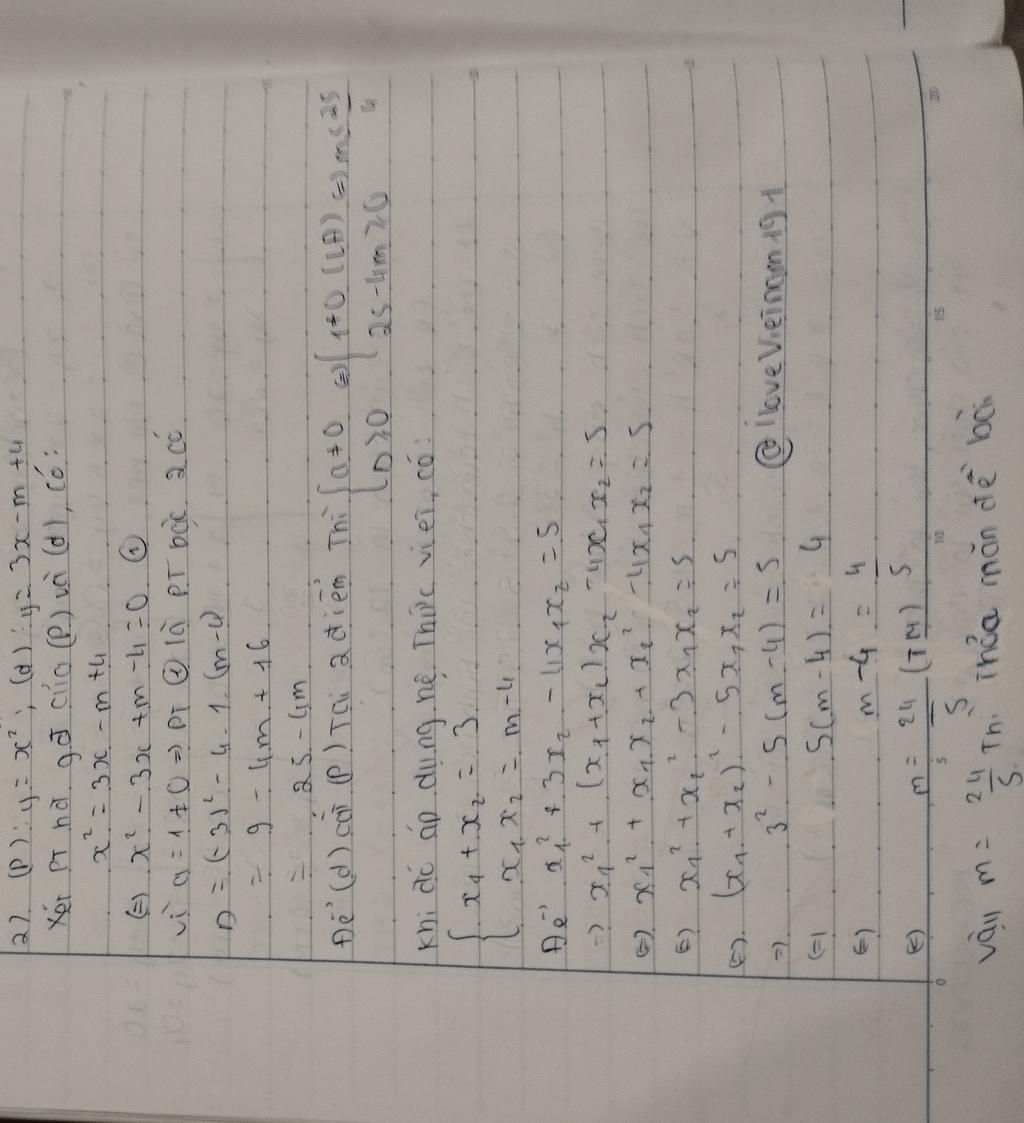 2) (P): y = x², (d): y = 3x - m + 4
Xét PT hđ gđ của (P) và (d), có:
x² = 3x - m + 4
(=) x² - 3x + m - 4 = 0 ①
Vì a = 1 ≠ 0 => PT ① là PT bậc 2 có
Δ = (-3)² - 4.1.(m-4)
= 9 - 4m + 16
= 25 - 4m
Để (d) cắt (P) tại 2 điểm thì { a ≠ 0 (=) { 1 ≠ 0 (LĐ) => m ≤ 25/4
Δ ≥ 0 25 - 4m ≥ 0
Khi đó áp dụng hệ thức viet, có:
{ x₁ + x₂ = 3
x₁x₂ = m - 4
Để x₁² + 3x₂ - 4x₁x₂ = 5
=) x₁² + (x₁ + x₂)x₂ - 4x₁x₂ = 5
(=) x₁² + x₁x₂ + x₂² - 4x₁x₂ = 5
(=) x₁² + x₂² - 3x₁x₂ = 5
(=) (x₁ + x₂)² - 5x₁x₂ = 5
=) 3² - 5(m - 4) = 5 @iloveVietnam191
(=) 5(m - 4) = 4
(=) m - 4 = 4/5
(=) m = 24/5 (TM)
Vậy m = 24/5 thì thỏa mãn đề bài
0 5 10 15 20